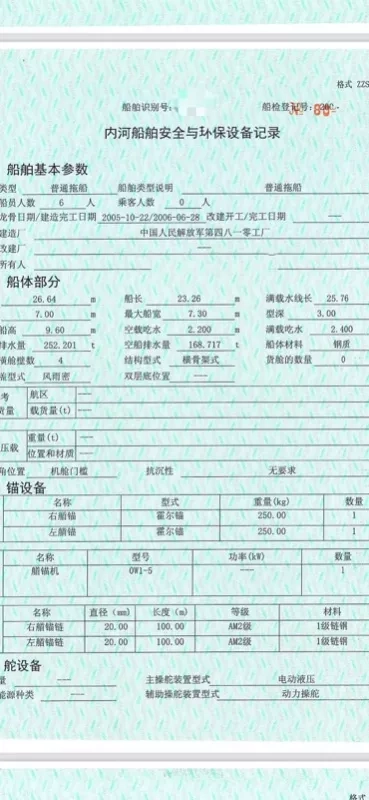 格式 ZZS
船舶识别号:
船检登记号:
№ 80
内河船舶安全与环保设备记录
船舶基本参数
类型 普通拖船 船舶类型说明 普通拖船
船员人数 6 人 乘客人数 0 人
龙骨日期/建造完工日期 2005-10-22/2006-06-28 改建开工/完工日期 ---
建造厂 中国人民解放军第四八一零工厂
改建厂 ---
所有人
船体部分
26.64 m 船长 23.26 m 满载水线长 25.76
7.00 m 最大船宽 7.30 m 型深 3.00
船高 9.60 m 空载吃水 2.200 m 满载吃水 2.400
排水量 252.201 t 空船排水量 168.717 t 船体材料 钢质
横舱壁数 4 结构型式 横骨架式 货舱的数量 0
盖型式 风雨密 双层底位置 ---
考 航区 ---
货量 载货量(t) ---
压载 重量(t) ---
位置和材质 ---
角位置 机舱门槛 抗沉性 无要求
锚设备
名称 型式 重量(kg) 数量
右艏锚 霍尔锚 250.00 1
左艏锚 霍尔锚 250.00 1
名称 型号 功率(kW) 数量
艏锚机 OW1-5 --- 1
名称 直径(mm) 长度(m) 等级 材料
右艏锚链 20.00 100.00 AM2级 1级链钢
左艏锚链 20.00 100.00 AM2级 1级链钢
舵设备
量 --- 主操舵装置型式 电动液压
能源种类 --- 辅助操舵装置型式 动力操舵
格式